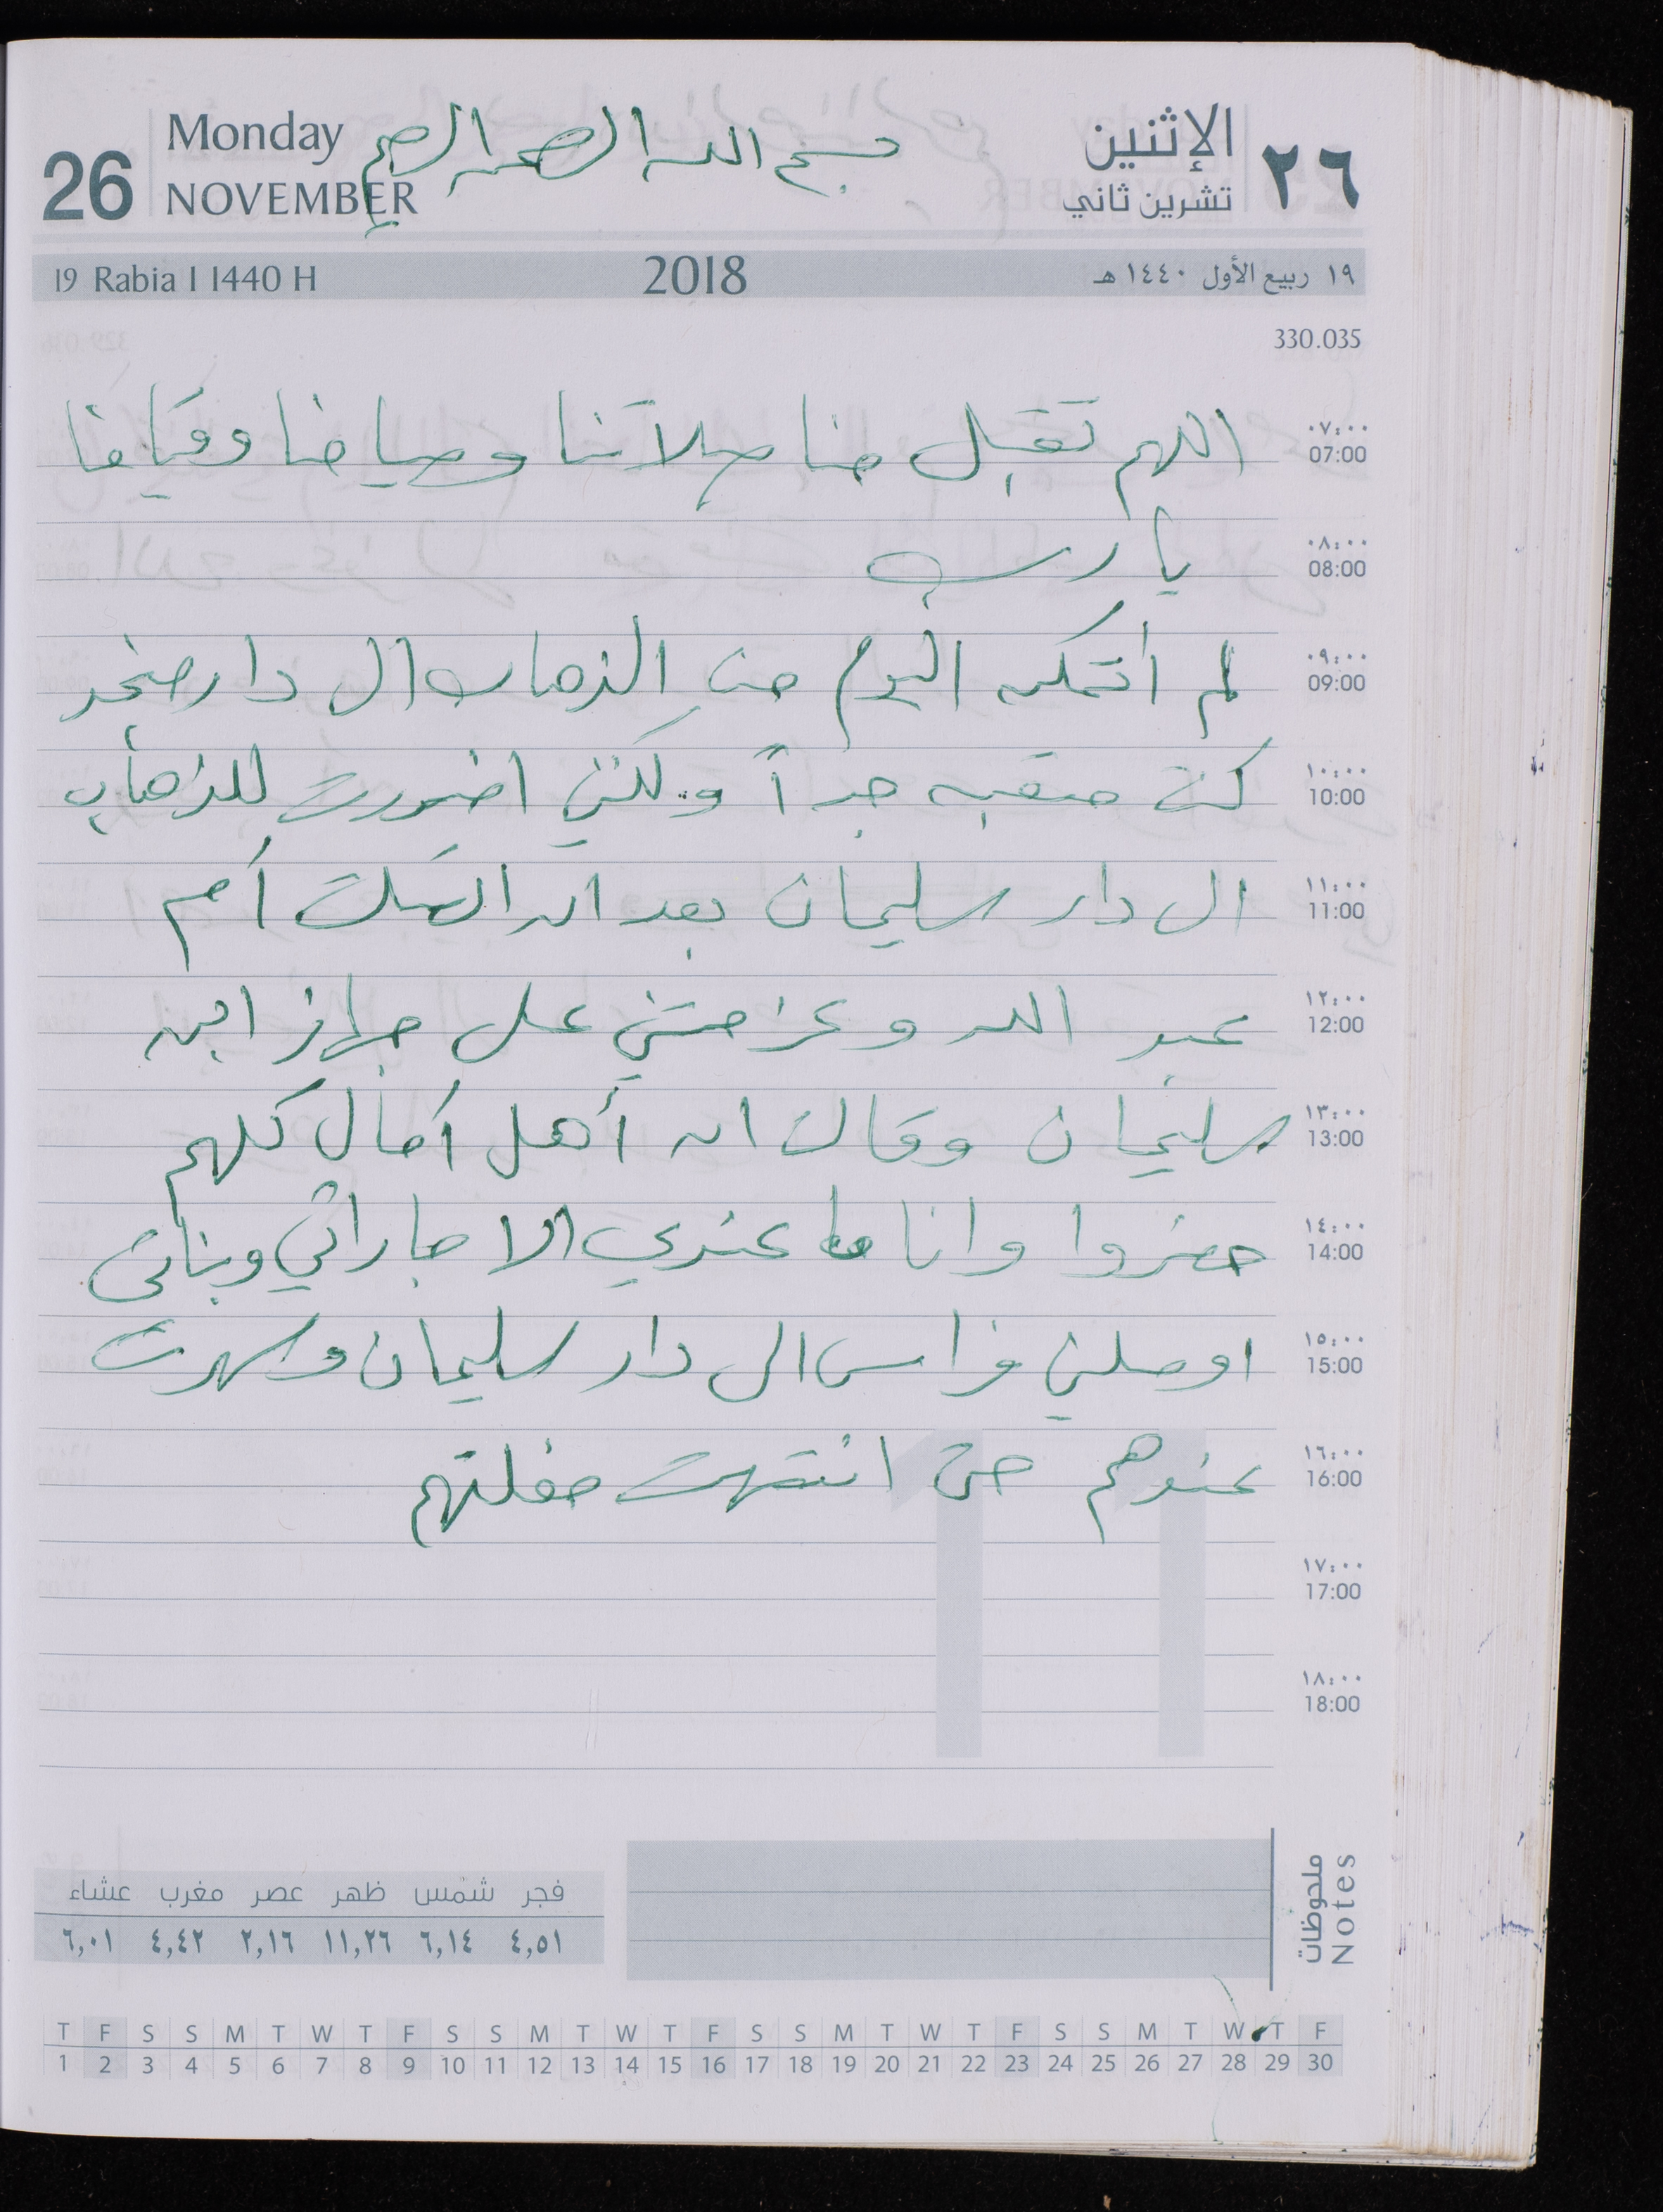 26 Monday NOVEMBER
بسم الله الرحمن الرحيم
الإثنين ٢٦
تشرين ثاني
19 Rabia I 1440 H 2018 ١٩ ربيع الأول ١٤٤٠ هـ
330.035
٠٧:٠٠ 07:00
اللهم تقبل منا صلاتنا وصيامنا وقيامنا
٠٨:٠٠ 08:00
يا رب
٠٩:٠٠ 09:00
لم أتمكن اليوم من الذهاب ال دار
١٠:٠٠ 10:00
كنت متعبه جداً ولكنني اضررت للذهاب
١١:٠٠ 11:00
ال دار سليمان بعد ان اتصلت أم
١٢:٠٠ 12:00
عبد الله وعزمتني على جهاز ابن
١٣:٠٠ 13:00
سليمان وقالت ان أهل أمال كلهم
١٤:٠٠ 14:00
حضروا وانا ما عندي الا جاراتي وبناتي
١٥:٠٠ 15:00
اوصلني فراس الى دار سليمان وسهرت
١٦:٠٠ 16:00
عندهم حتى انتهت حفلتهم
١٧:٠٠ 17:00
١٨:٠٠ 18:00
ملحوظات Notes
فجر شمس ظهر عصر مغرب عشاء
٤,٥١ ٦,١٤ ١١,٢٦ ٢,١٦ ٤,٤٢ ٦,٠١
T F S S M T W T F S S M T W T F S S M T W T F S S M T W T F
1 2 3 4 5 6 7 8 9 10 11 12 13 14 15 16 17 18 19 20 21 22 23 24 25 26 27 28 29 30